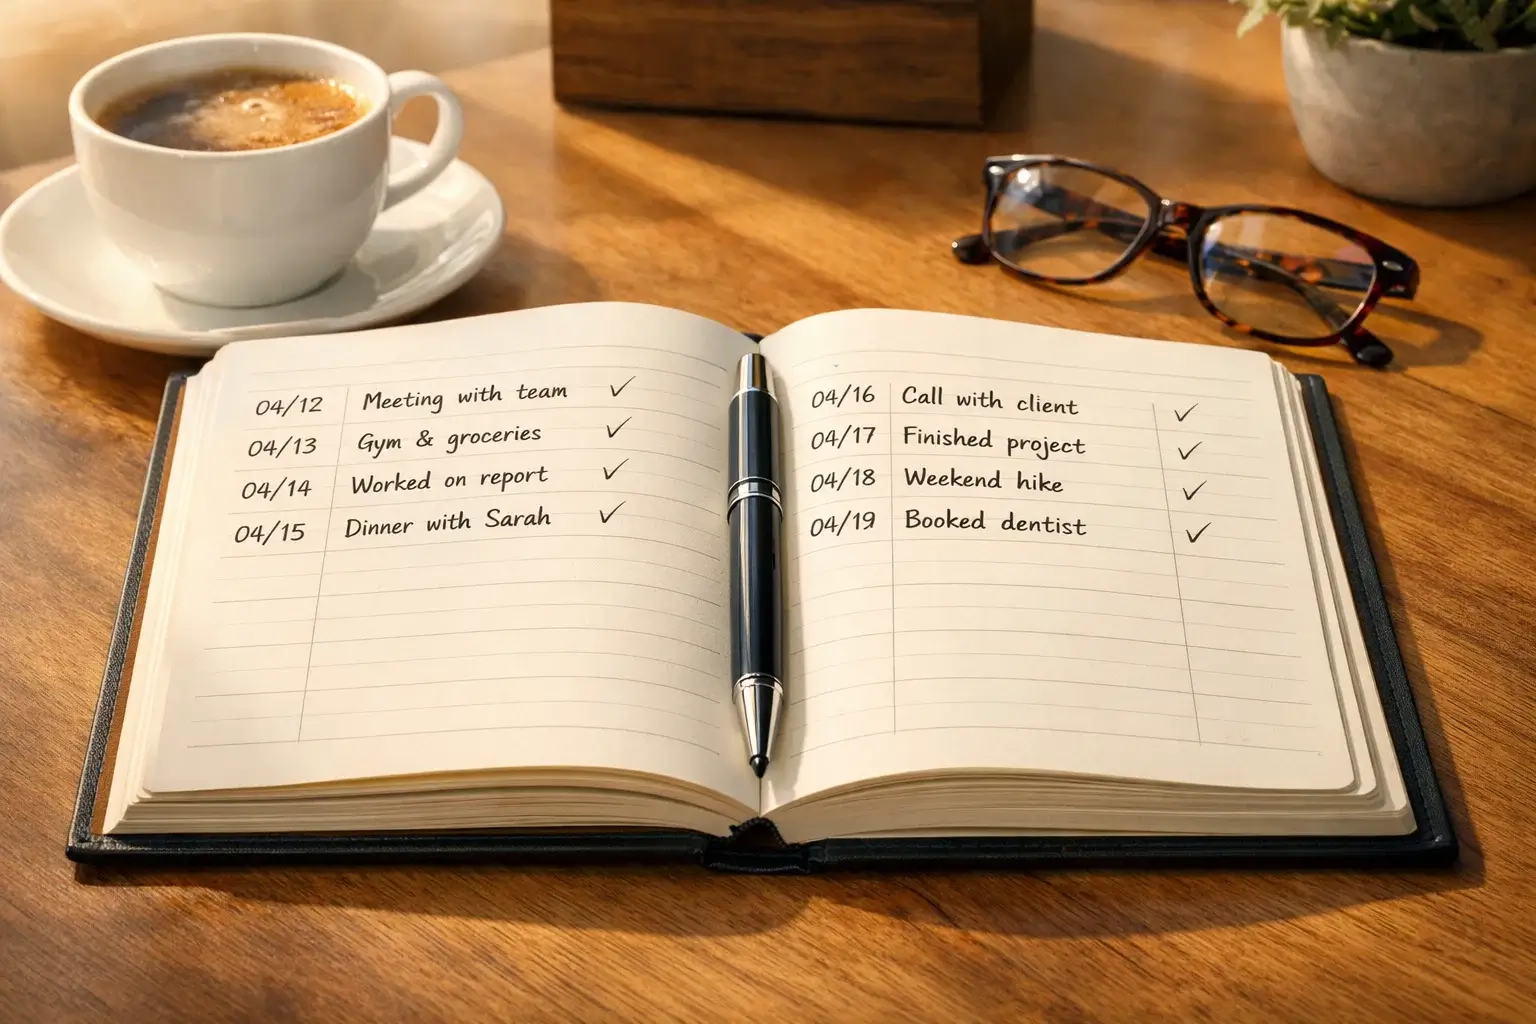 04/12 Meeting with team ✓
04/13 Gym & groceries ✓
04/14 Worked on report ✓
04/15 Dinner with Sarah ✓
04/16 Call with client ✓
04/17 Finished project ✓
04/18 Weekend hike ✓
04/19 Booked dentist ✓